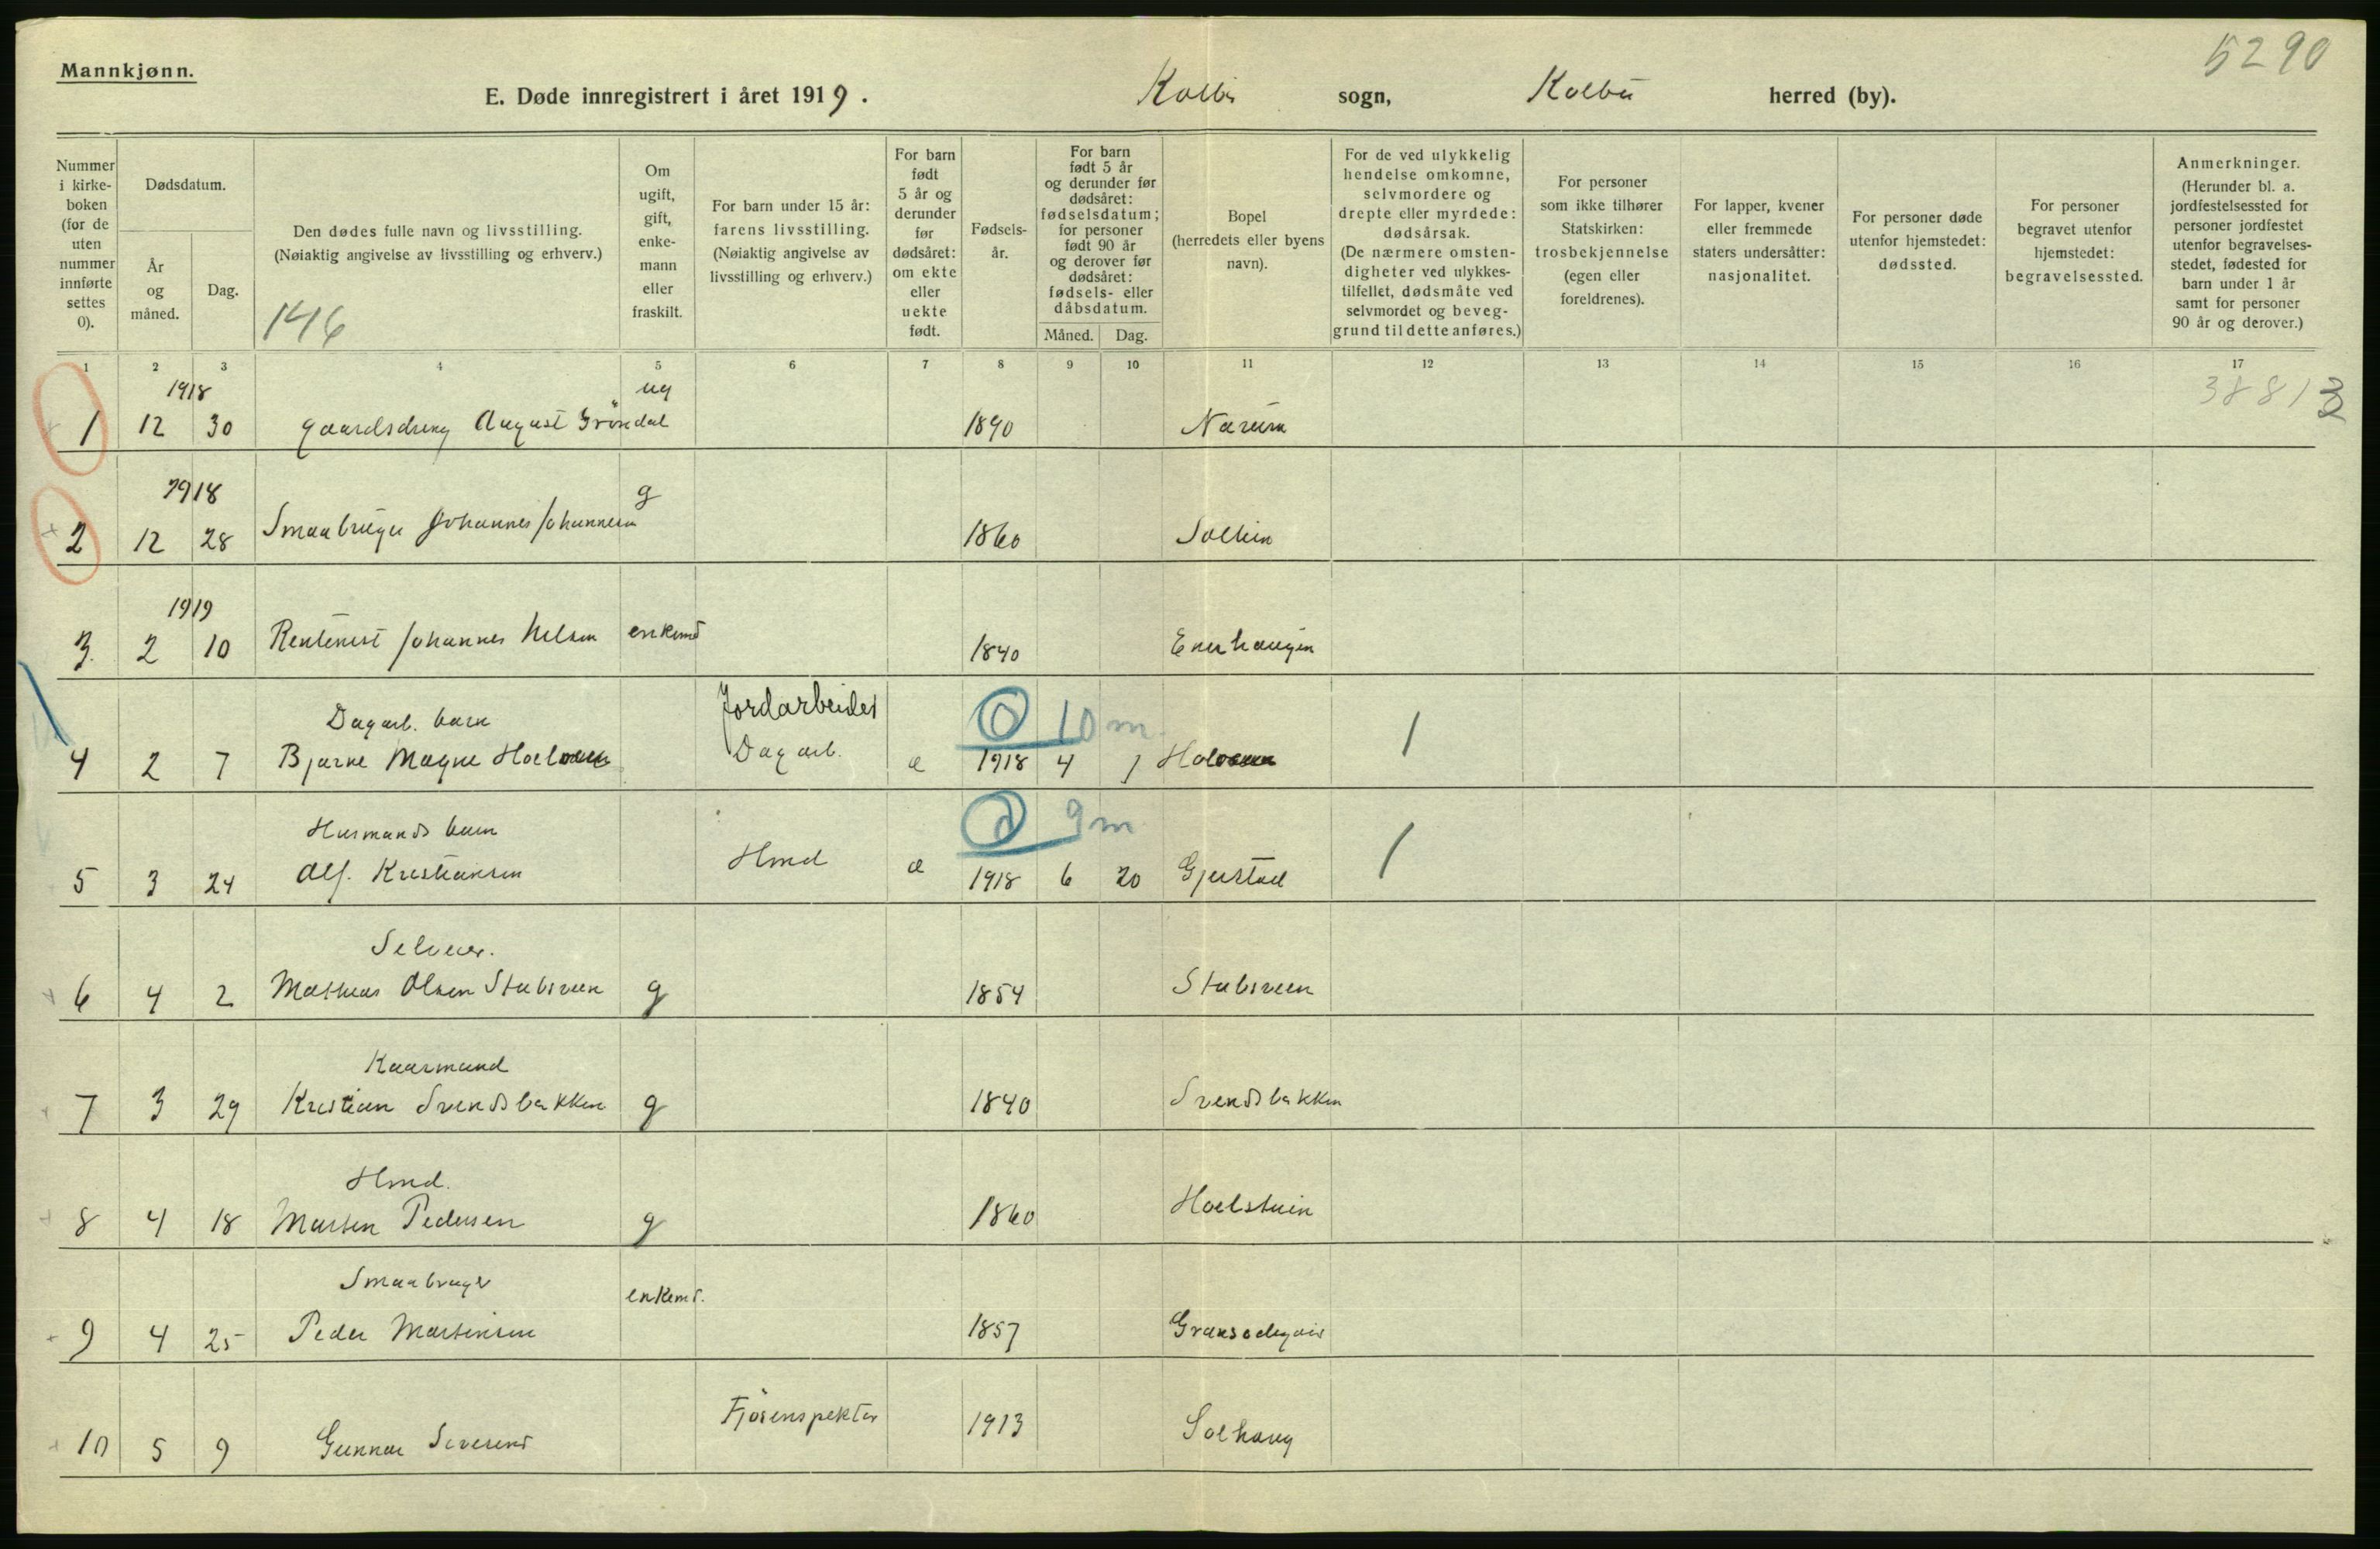 5290
Mannkjønn.
E. Døde innregistrert i året 1919. Kolbu sogn, Kolbu herred (by).
Nummer i kirke-boken (for de uten nummer innførte settes 0).
Dødsdatum.
År og måned.
Dag.
Den dødes fulle navn og livsstilling.
(Nøiaktig angivelse av livsstilling og erhverv.)
146
Om ugift, gift, enke-mann eller fraskilt.
For barn under 15 år: farens livsstilling.
(Nøiaktig angivelse av livsstilling og erhverv.)
For barn født 5 år og derunder før dødsåret: om ekte eller uekte født.
Fødsels-år.
For barn født 5 år og derunder før dødsåret: fødselsdatum; for personer født 90 år og derover før dødsåret: fødsels- eller dåbsdatum.
Måned. Dag.
Bopel (herredets eller byens navn).
For de ved ulykkelig hendelse omkomne, selvmordere og drepte eller myrdede: dødsårsak.
(De nærmere omsten-digheter ved ulykkes-tilfellet, dødsmåte ved selvmordet og beveg-grund til dette anføres.)
For personer som ikke tilhører Statskirken: trosbekjennelse (egen eller foreldrenes).
For lapper, kvener eller fremmede staters undersåtter: nasjonalitet.
For personer døde utenfor hjemstedet: dødssted.
For personer begravet utenfor hjemstedet: begravelsessted.
Anmerkninger.
(Herunder bl. a. jordfestelsessted for personer jordfestet utenfor begravelses-stedet, fødested for barn under 1 år samt for personer 90 år og derover.)
1 2 3 4 5 6 7 8 9 10 11 12 13 14 15 16 17
1918 ug 3881
1 12 30 gaardsdreng August Gröndal 1890 Narum
1918 g
2 12 28 Smaabruger Johannes Johannesen 1860
1919
3. 2 10 Rentenist Johannes Nelsen enkemd 1840 Enerhaugen
Dagarb. barn Jordarbeider 0 10 m
4 2 7 Bjarne Magne Dagarb. æ 1918 4 1
Husmands barn 0 9 m
5 3 24 Alf. Kristiansen Hmd æ 1918 6 20 Gjerstad
Selveier.
6 4 2 Mathias Olsen Stubsveen g 1854 Stubsveen
Kaarmand
7 3 29 Kristian Svendsbakken g 1840 Svendsbakken
Hmd.
8 4 18 Marten Pedersen g 1860 Hoelstuen
Smaabruger enkemd.
9 4 25 Peder Martinsen 1857
10 5 9 Gunnar Fjösinspektør 1913 Solhaug